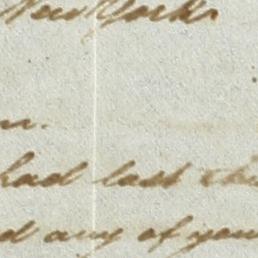 New York
had last
any of your